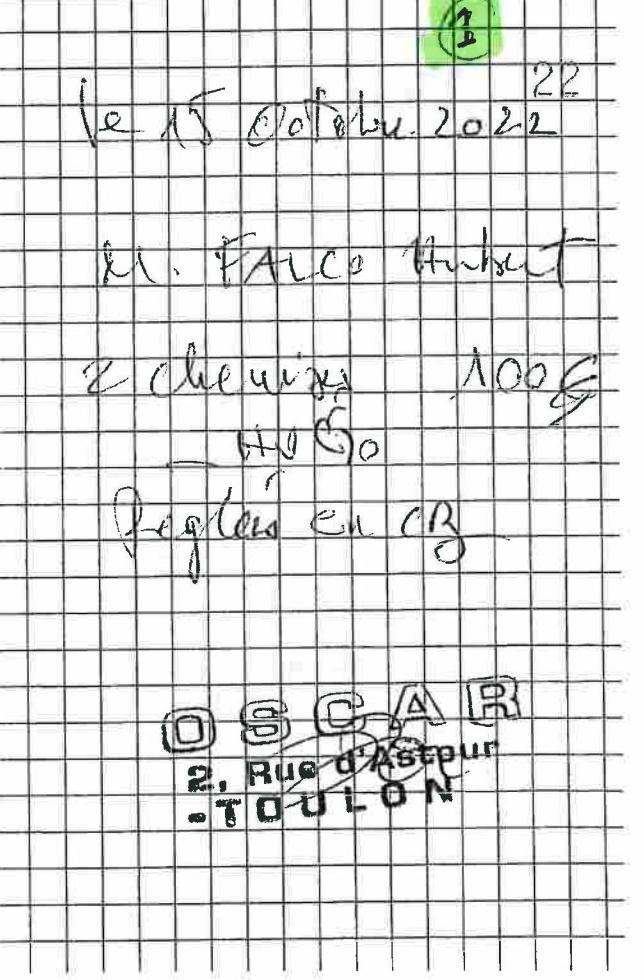 1
22
le 15 Octobre 2022
M. FALCO Hubert
2 chemises 100€
HUGO
Réglées en CB
OSCAR
2, Rue d'Astour
-TOULON